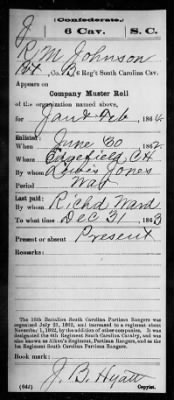 J
(Confederate.)
6 Cav. S. C.
R. M. Johnson
Pvt, Co. B, 6 Reg't South Carolina Cav.
Appears on
Company Muster Roll
of the organization named above,
for Jan & Feb, 1864
Enlisted:
When June 30 1862
Where Edgefield C.H.
By whom Lewis Jones
Period War
Last paid:
By whom Richd Ward
To what time Dec 31, 1863
Present or absent Present
Remarks:
The 16th Battalion South Carolina Partisan Rangers
was organized July 21, 1862, and increased to a regiment about
November 1, 1862, by the addition of other companies. It was
designated the 6th Regiment South Carolina Cavalry, and was
also known as Aiken's Regiment, Partisan Rangers, and as the
1st Regiment South Carolina Partisan Rangers.
Book mark:
J. B. Hyatt
(642) Copyist.